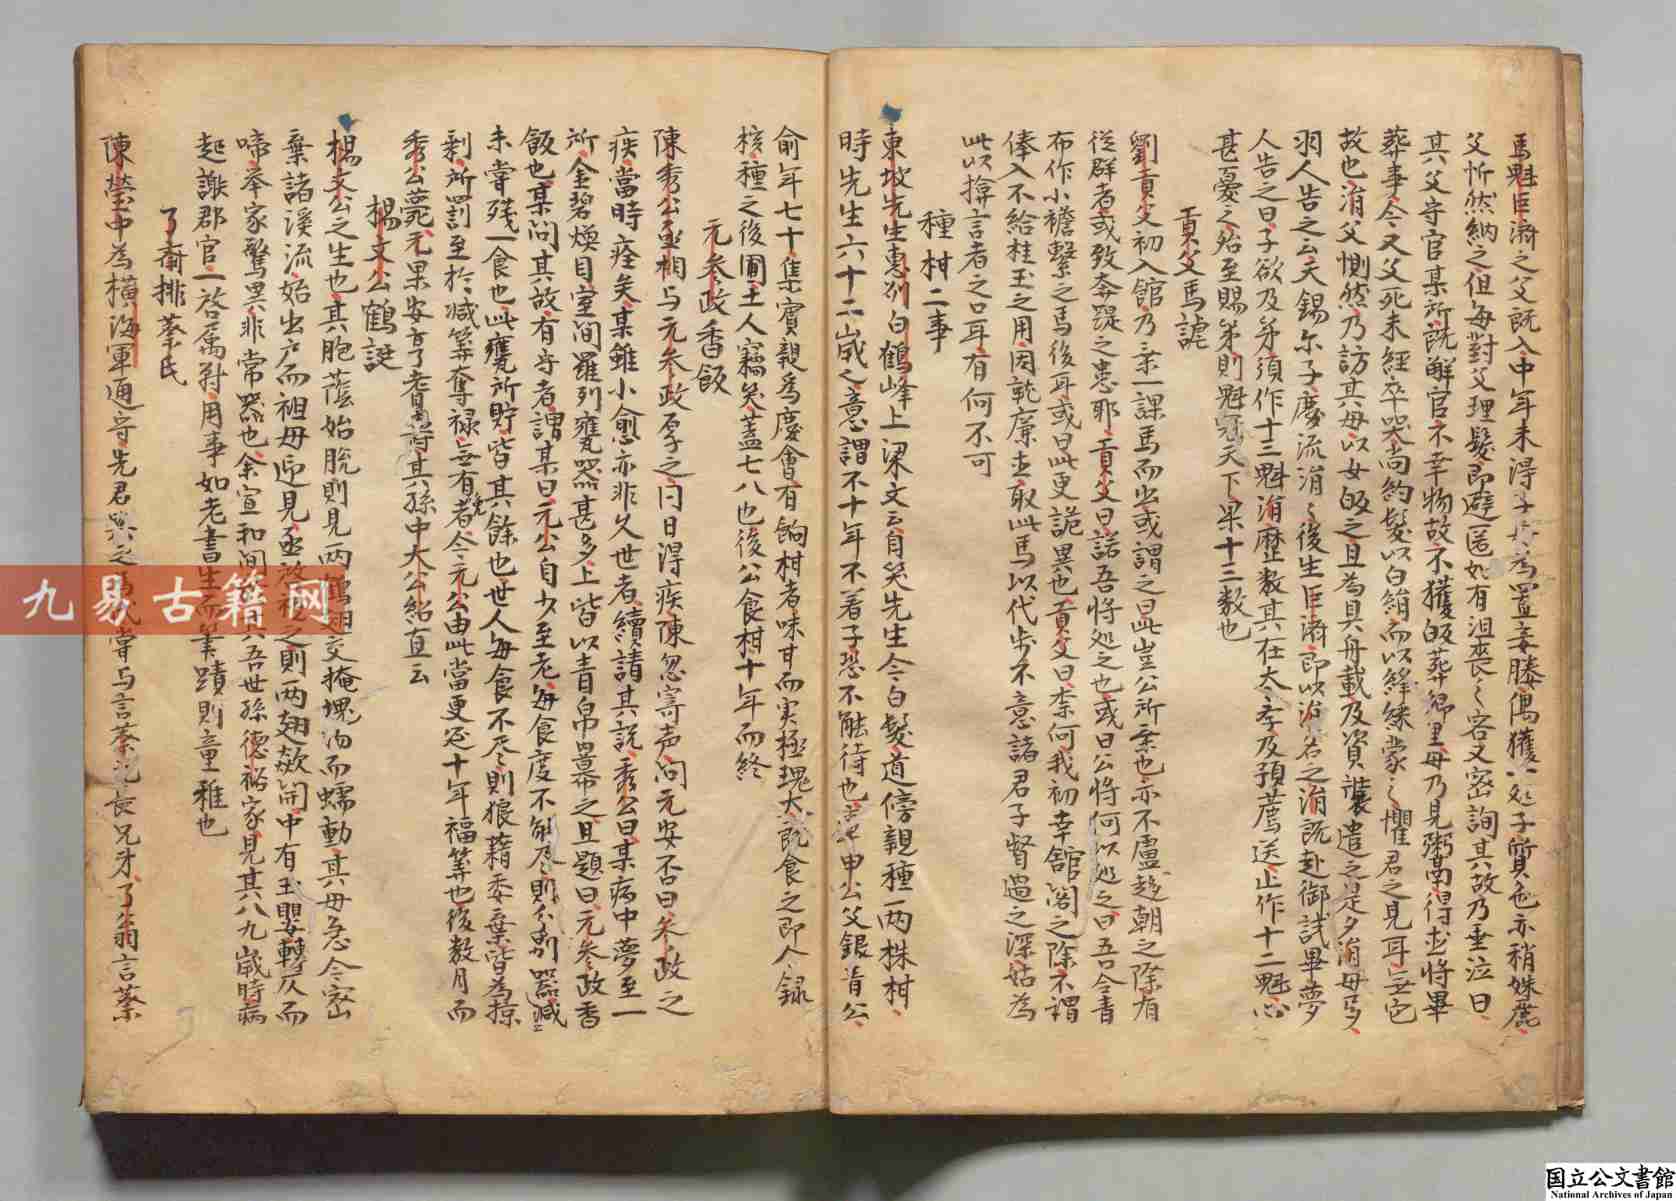 馬魁巨済之父既入中年未得子母為置妾媵偶獲一処子質色亦稍姝麗
父忻然納之但每對父理髮即避匿如有沮喪之容父密詢其故乃垂泣曰
其父守官某所既解官不幸物故不獲皈葬鄉里母乃見粥南得直將畢
葬事今父死未經卒哭尚約髮以白絹而以絳綵蒙之懼君之見耳無它
故也涓父惻然乃訪其母以女皈之且為具舟載及資装遣之是夕涓母夢
羽人告之云天錫尓子慶流涓涓後生巨済即以涓名之涓既赴御試畢夢
人告之曰子欲及苐須作十三魁涓歷数其在太学及預薦送止作十二魁心
甚憂之殆至賜苐則魁冠天下果十三数也
貢父馬謔
劉貢父初入館乃乘一課馬而出或謂之曰此豈公所乘也亦不慮趍朝之際有
從群者或致奔踶之患耶貢父曰諾吾將処之也或曰公將何以処之曰吾令青
布作小襜繫之馬後耳或曰此更詭異也貢父曰柰何我初幸舘閣之除不謂
俸入不給桂玉之用因就廉直取此馬以代步不意諸君子督過之深姑為
此以揜言者之口耳有何不可
種柑二事
東坡先生惠州白鶴峰上梁文云自笑先生今白髮道傍親種兩株柑
時先生六十二歲之意謂不十年不著子恐不能待也章申公父銀青公
俞年七十集賓親為慶會有餉柑者味甘而実極瑰大既食之即令録
核種之後圃土人竊笑蓋七八也後公食柑十年而終
元参政香飯
陳秀公丞相与元参政厚之同日得疾陳忽寄声问元安否曰参政之
疾當時痊矣某雖小愈亦非久世者續請其説秀公曰某病中夢至一
所金碧煥目室间羅列甕器甚多上皆以青帛冪之且題曰元参政香
飯也某问其故有守者謂某曰元公自少至老每食度不能尽則分别器减
未嘗残一食也此甕所貯皆其餘也世人每食不尽則狼藉委棄皆為掠
剩所罰至於减筭奪禄無有免者今元公由此當更延十年福筭也後数月而
秀公薨元果安享耆壽其孫中大公紹直云
楊文公鶴誕
楊文公之生也其胞䕃始脫則見兩鶴翅交掩塊肉而蠕動其母急令密
棄諸溪流始出戸而祖母迎見亟啓視之則兩翅歘開中有玉嬰轉仄而
啼举家驚異非常器也余宣和间於其五世孫德裕家見其八九歲時病
起謝郡官一啓属對用事如老書生而筆蹟則童稚也
了齋排蔡氏
陳瑩中為横海軍通守先君與之為代嘗与言蔡元長兄弟了翁言蔡
九易古籍网
国立公文書館
National Archives of Japan